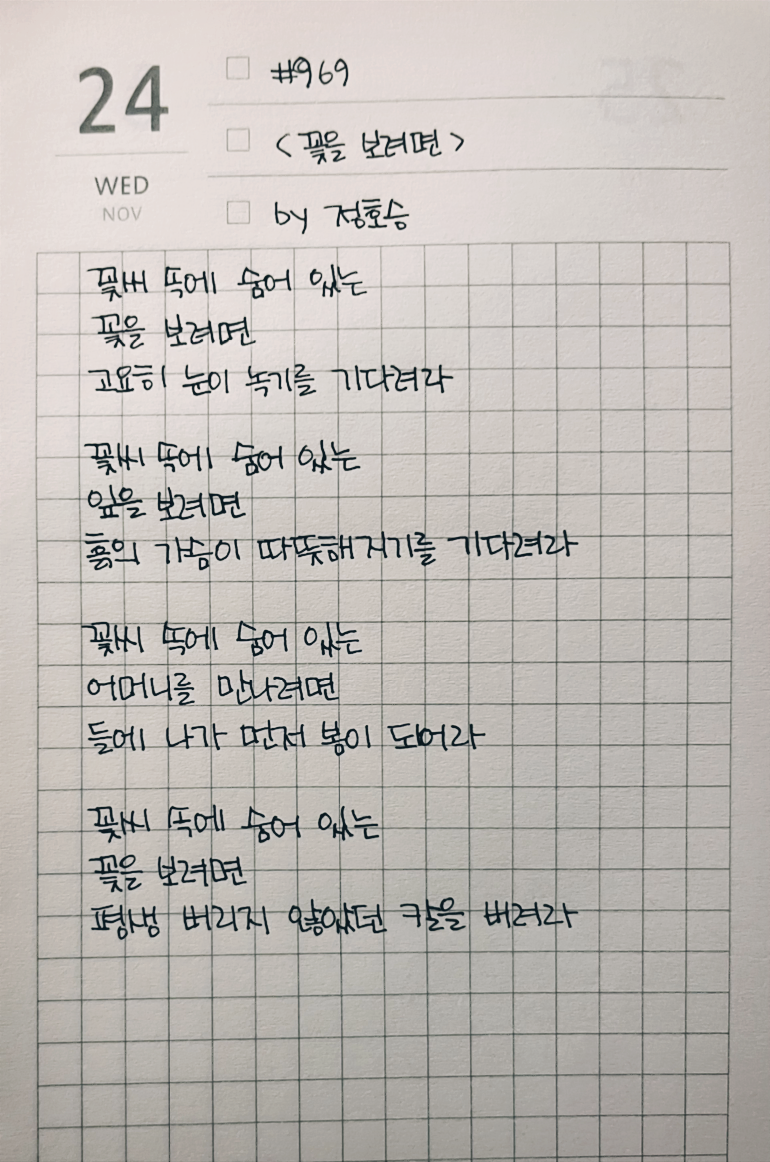 24
WED
NOV
#969
<꽃을 보려면>
by 정호승
꽃씨 속에 숨어 있는
꽃을 보려면
고요히 눈이 녹기를 기다려라
꽃씨 속에 숨어 있는
잎을 보려면
흙의 가슴이 따뜻해지기를 기다려라
꽃씨 속에 숨어 있는
어머니를 만나려면
들에 나가 먼저 봄이 되어라
꽃씨 속에 숨어 있는
꽃을 보려면
평생 버리지 않았던 칼을 버려라